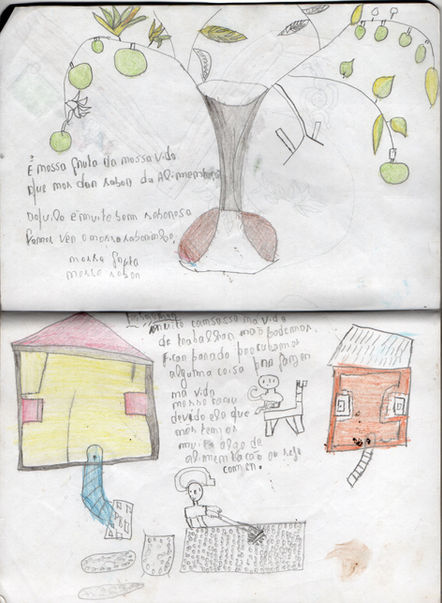 É nossa fruta da nossa vida
que nos dar sabor da Alimentação
daquilo é muito bom saborosa
Vamos ver o nosso saborinho
nossa fruta
nosso sabor
muito camsasso na vida
de trabalhar mais podemos
ficar parado procuramos
alguma coisa pra fazer
na vida
devido ela que
nos temos
muito algo de
alimentação ou seja
comer.